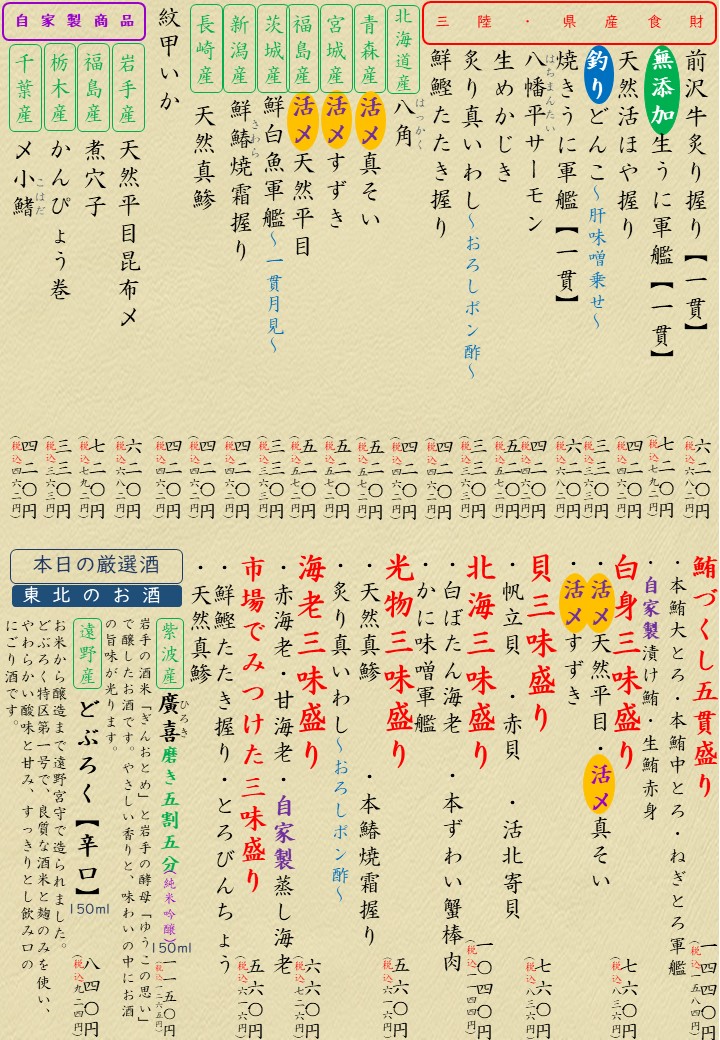 三陸・県産食財
前沢牛炙り握り【一貫】 六二〇円 (税込六八二円)
無添加生うに軍艦【一貫】 七二〇円 (税込七九二円)
天然活ほや握り 四二〇円 (税込四六二円)
釣りどんこ～肝味噌乗せ～ 三三〇円 (税込三六三円)
焼きうに軍艦【一貫】 六二〇円 (税込六八二円)
はちまんたい
八幡平サーモン 四二〇円 (税込四六二円)
生めかじき 五二〇円 (税込五七二円)
炙り真いわし～おろしポン酢～ 三三〇円 (税込三六三円)
鮮鰹たたき握り 四二〇円 (税込四六二円)
はっかく
北海道産 八角 四二〇円 (税込四六二円)
青森産 活〆真そい 五二〇円 (税込五七二円)
宮城産 活〆すずき 五二〇円 (税込五七二円)
福島産 活〆天然平目 五二〇円 (税込五七二円)
茨城産 鮮白魚軍艦～一貫月見～ 三三〇円 (税込三六三円)
さわら
新潟産 鮮鰆焼霜握り 四二〇円 (税込四六二円)
長崎産 天然真鯵 四二〇円 (税込四六二円)
紋甲いか 四二〇円 (税込四六二円)
自家製商品
岩手産 天然平目昆布〆 六二〇円 (税込六八二円)
福島産 煮穴子 七二〇円 (税込七九二円)
栃木産 かんぴょう巻 三三〇円 (税込三六三円)
こはだ
千葉産 〆小鰭 四二〇円 (税込四六二円)
鮪づくし五貫盛り 一四四〇円 (税込一五八四円)
・本鮪大とろ・本鮪中とろ・ねぎとろ軍艦
・自家製漬け鮪・生鮪赤身
白身三味盛り 七六〇円 (税込八三六円)
・活〆天然平目・活〆真そい
・活〆すずき
貝三味盛り 七六〇円 (税込八三六円)
・帆立貝・赤貝・活北寄貝
北海三味盛り 一〇四〇円 (税込一一四四円)
・白ぼたん海老・本ずわい蟹棒肉
・かに味噌軍艦
光物三味盛り 五六〇円 (税込六一六円)
・天然真鯵・本鰆焼霜握り
・炙り真いわし～おろしポン酢～
海老三味盛り 六六〇円 (税込七二六円)
・赤海老・甘海老・自家製蒸し海老
市場でみつけた三味盛り 五六〇円 (税込六一六円)
・鮮鰹たたき握り・とろびんちょう
・天然真鯵
本日の厳選酒
東北のお酒
ひろき
紫波産 廣喜磨き五割五分(純米吟醸) 150ml 一一五〇円 (税込一二六五円)
岩手の酒米「ぎんおとめ」と岩手の酵母「ゆうこの思い」
で醸したお酒です。やさしい香りと、味わいの中にお酒
の旨味が光ります。
遠野産 どぶろく【辛口】 150ml 八四〇円 (税込九二四円)
お米から醸造まで遠野宮守で造られました。
どぶろく特区第一号で、良質な酒米と麹のみを使い、
やわらかい酸味と甘み、すっきりとし飲み口の
にごり酒です。